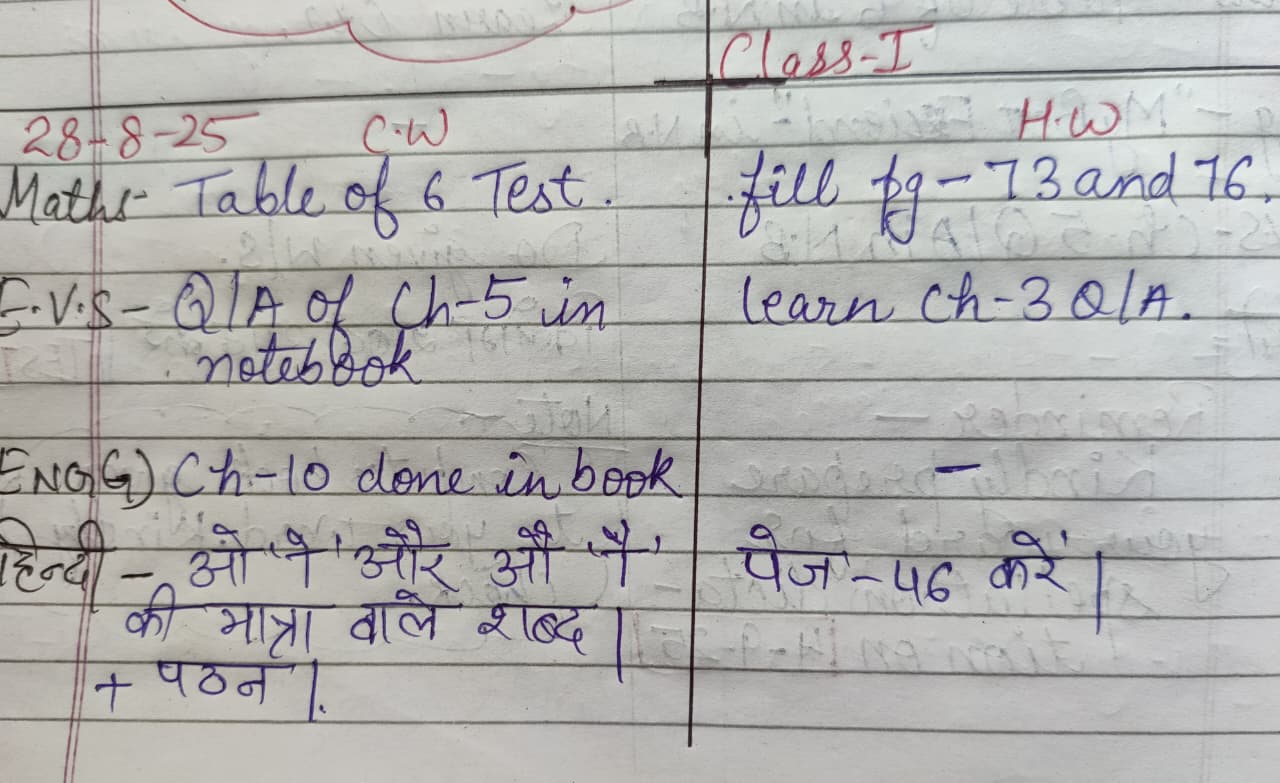 Class-I
28-8-25 C.W H.W
Maths- Table of 6 Test. fill pg-73 and 76.
E.V.S- Q/A of Ch-5 in learn Ch-3 Q/A.
notebook
ENG(G) Ch-10 done in book -
हिन्दी - ओ 'ो' और औ 'ौ' पेज-46 करें।
की मात्रा वाले शब्द।
+ पठन।